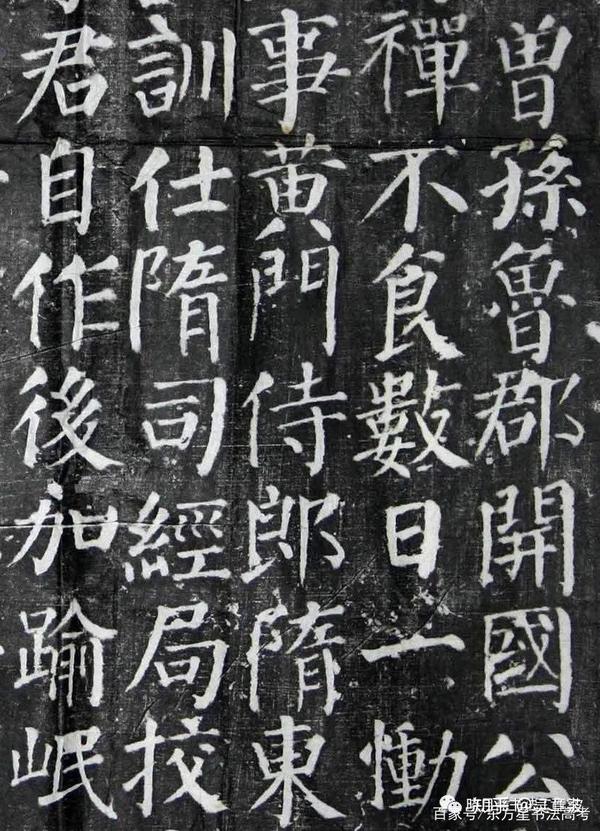 曽孫魯郡開國公
禪不食數日一慟
事黄門侍郎隋東
訓仕隋司經局校
君自作後加踰岷
百家号/东方星书法高考